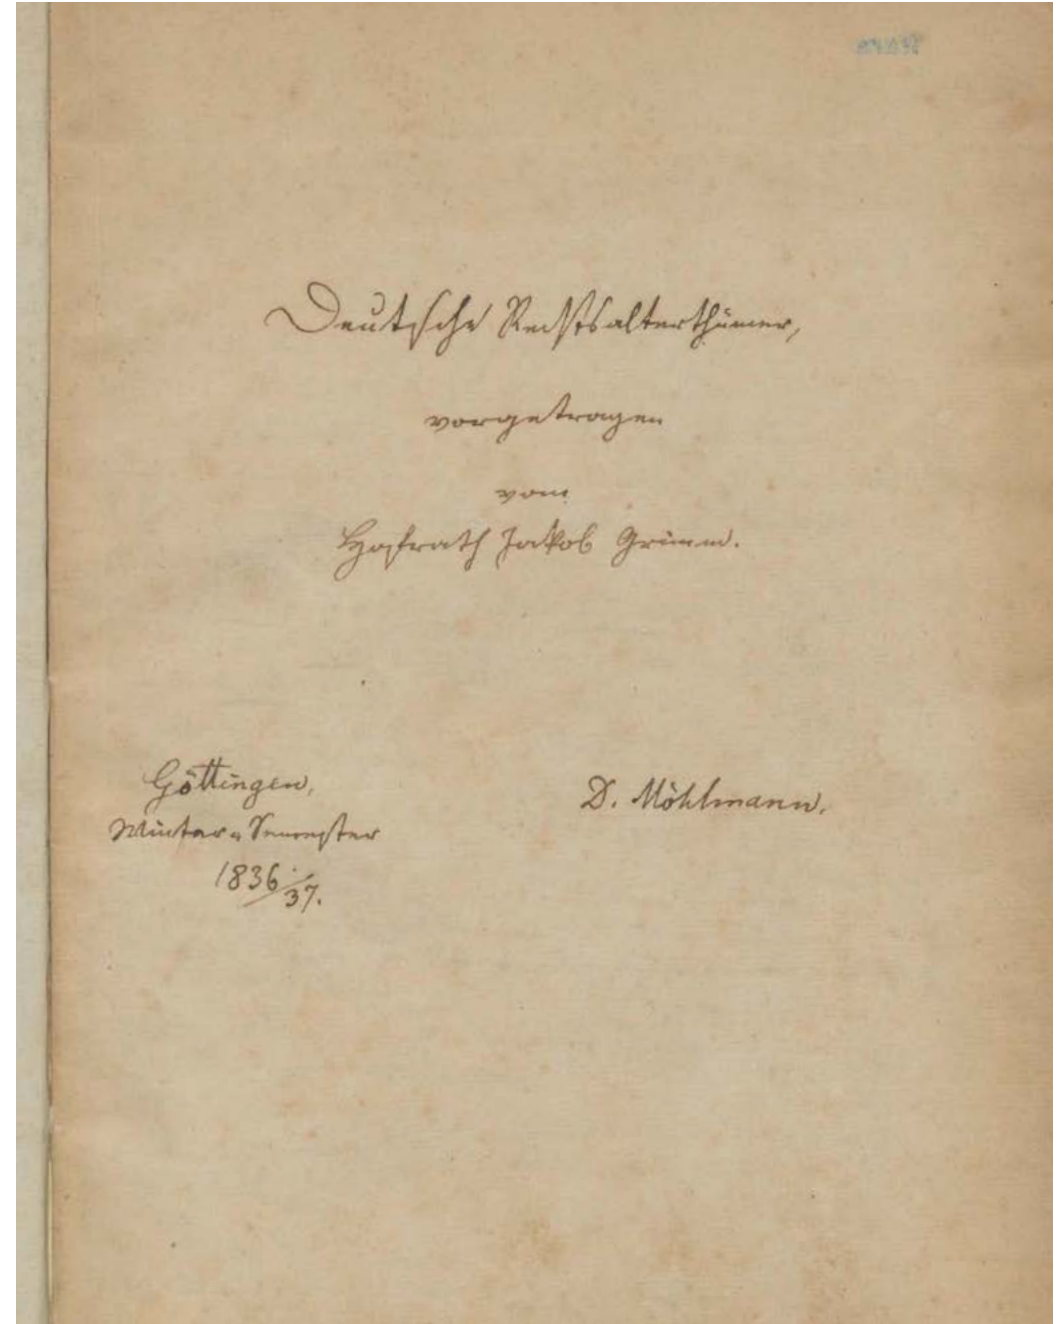 Deutsche Rechtsalterthümer,
vorgetragen
vom
Hofrath Jakob Grimm.
Göttingen,
Winter-Semester
1836/37.
D. Möhlmann.